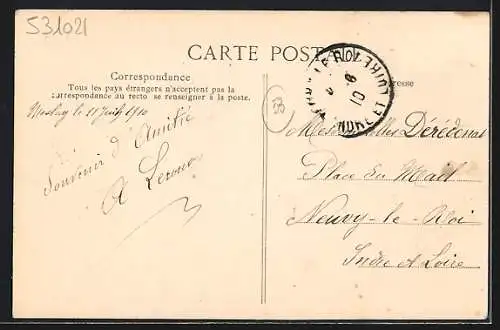 531021
CARTE POSTALE
Correspondance
Tous les pays étrangers n'acceptent pas la
correspondance au recto se renseigner à la poste.
Adresse
le 11 Juil 1910
Souvenir d'Amitié
A
53
LOIR-ET-CHER
Mesdemoiselles Dérédenas
Place du Mail
Neuvy-le-Roi
Indre et Loire